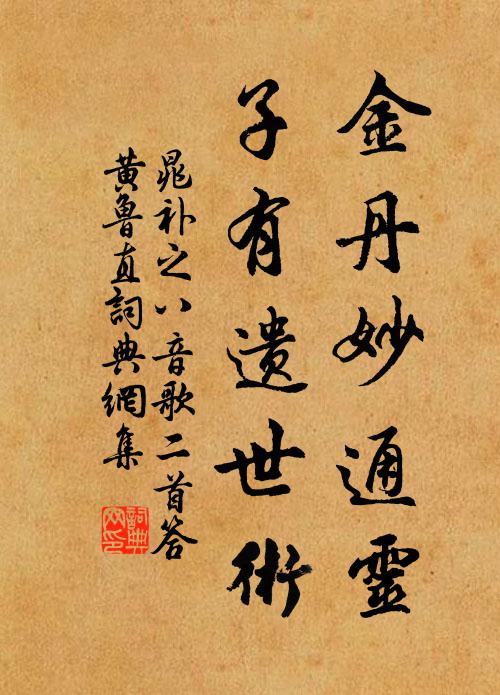 金丹妙通靈
子有遺世術
晁补之八音歌二首答
黄魯直詞典網集
詞典网印